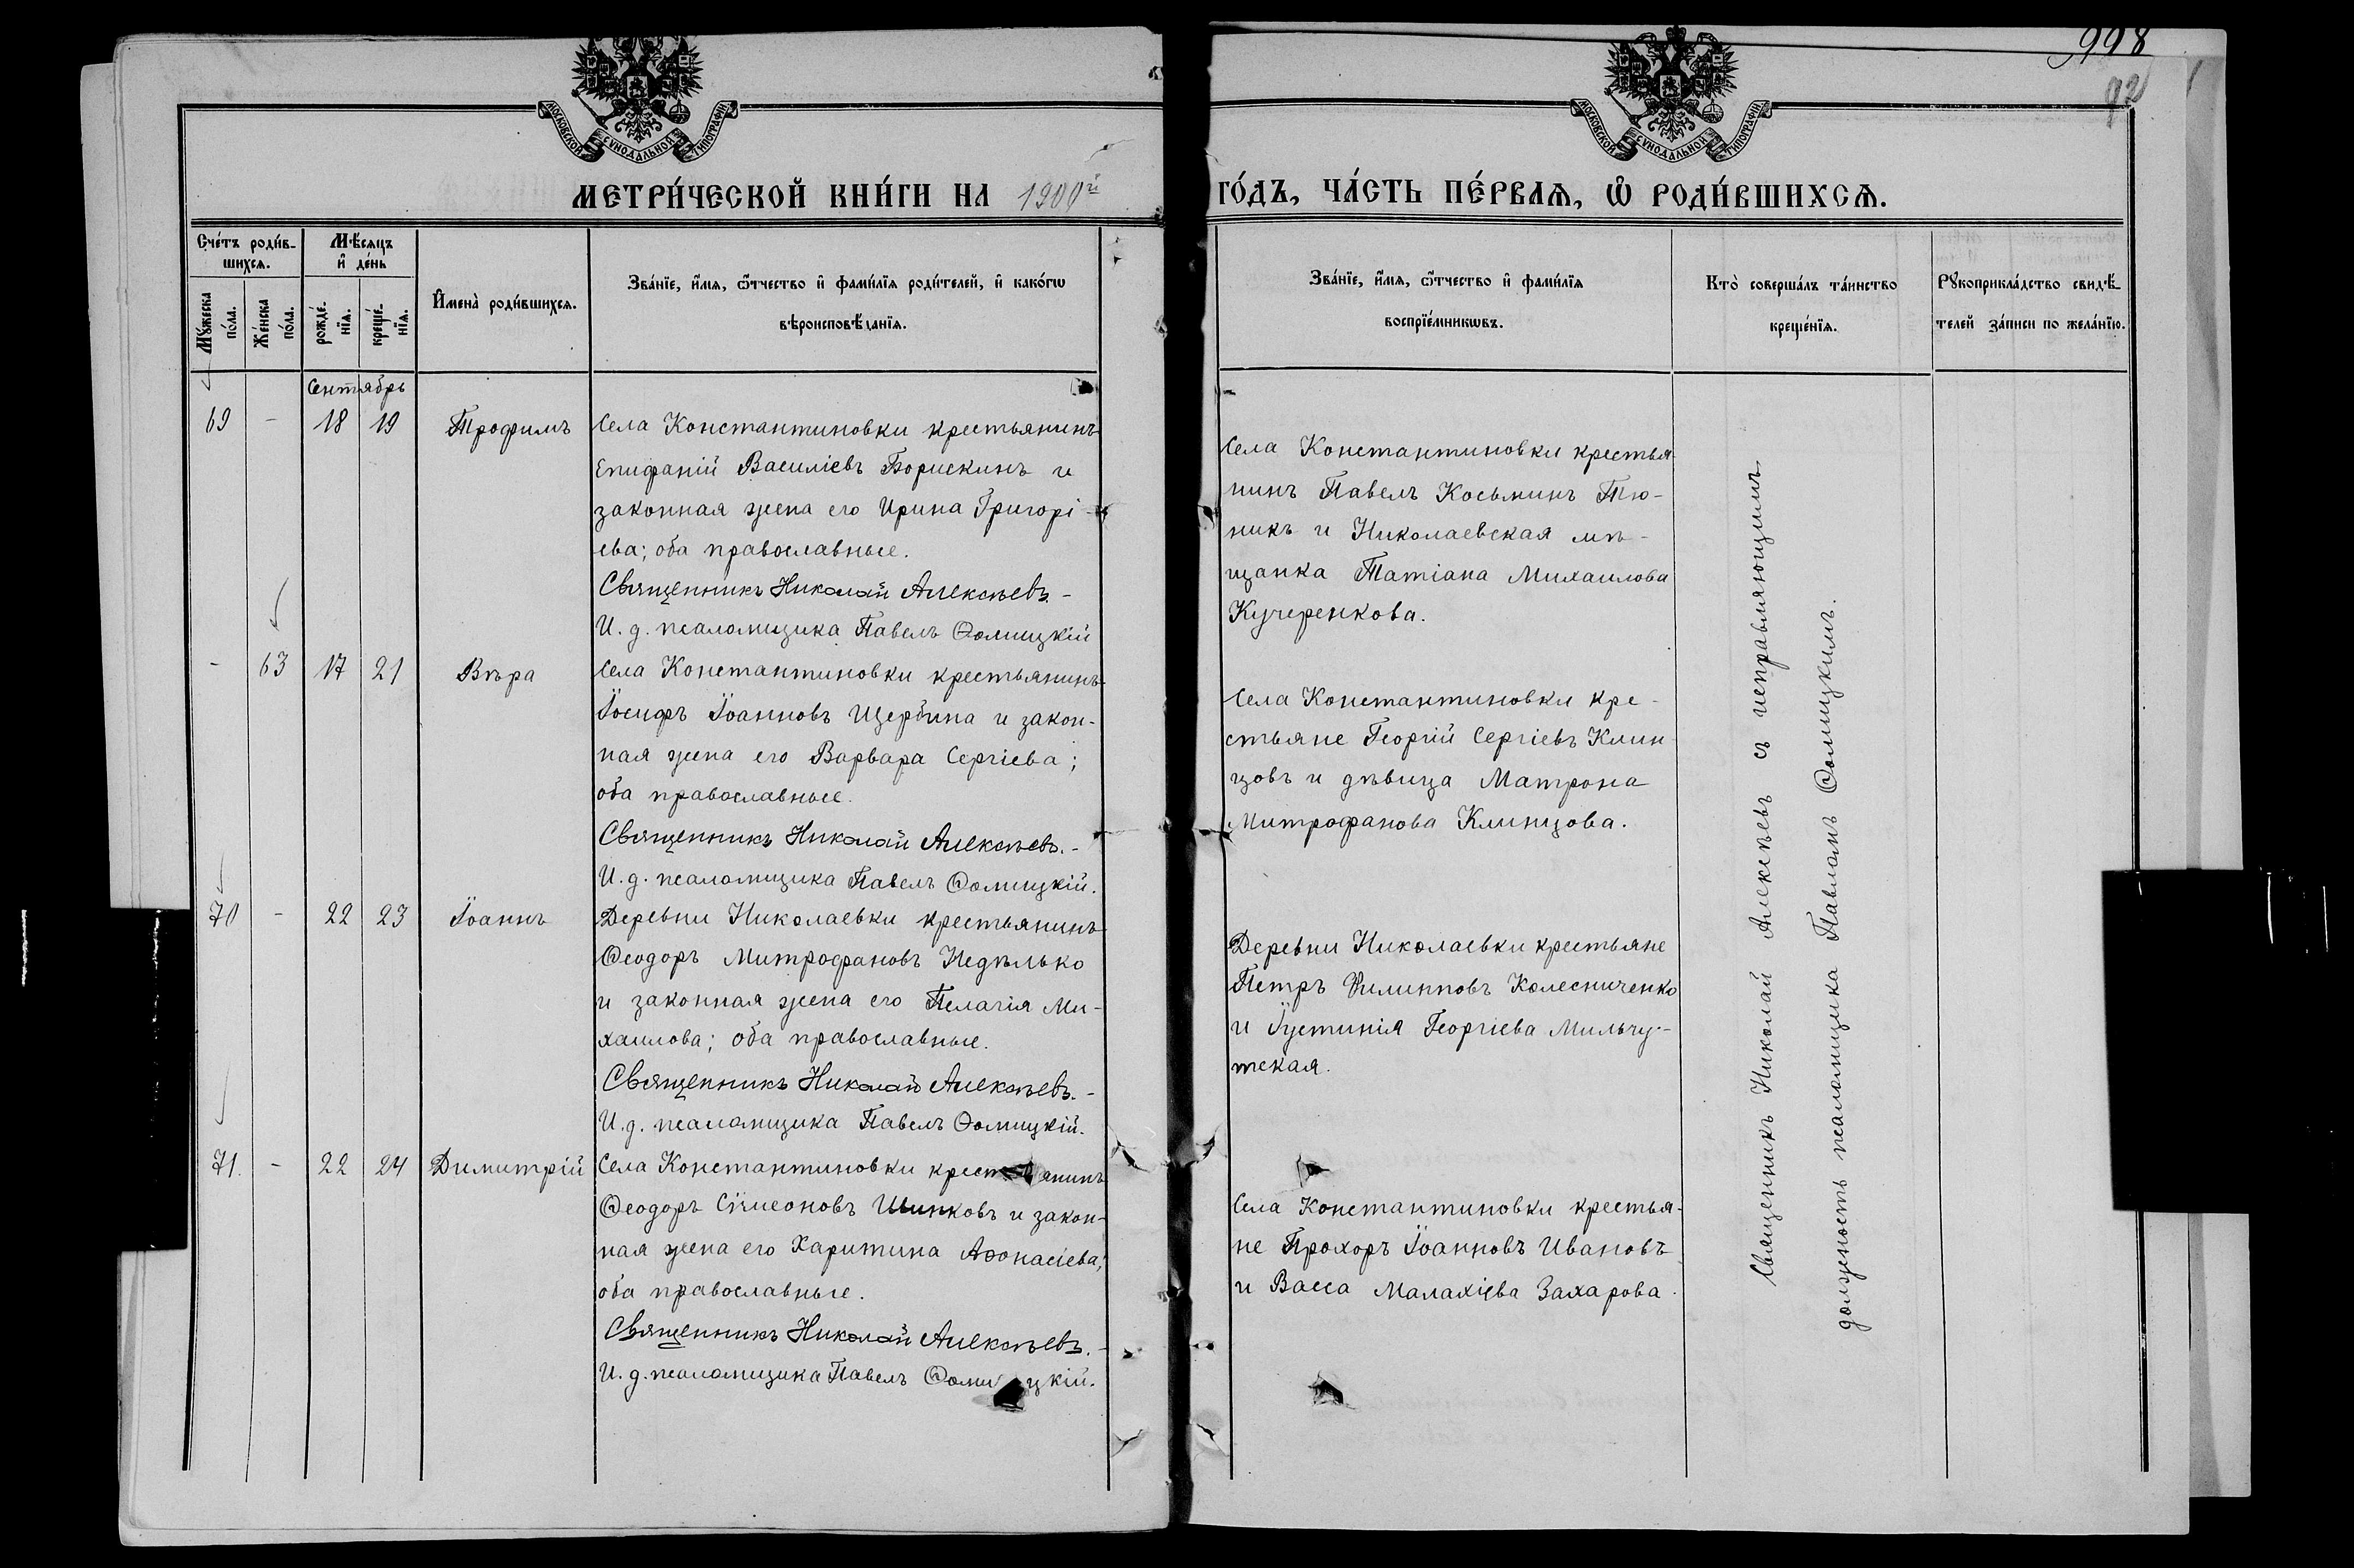 998
92
МОСКОВСКОЙ СѴНОДАЛЬНОЙ ТИПОГРАФІИ
МОСКОВСКОЙ СѴНОДАЛЬНОЙ ТИПОГРАФІИ
МЕТРИ́ЧЕСКОЙ КНИ́ГИ НА 1900й
ГО́ДЪ, ЧА́СТЬ ПЕ́РВАѦ, Ѡ҆ РОДИ́ВШИХСѦ.
Сче́тъ роди́в-
шихсѧ.
Мꙋ́жеска
по́ла.
Же́нска
по́ла.
Мѣ́сѧцъ
и҆ де́нь
рожде́-
нїѧ.
креще́-
нїѧ.
И҆мена̀ роди́вшихсѧ.
Зва́нїе, и҆́мѧ, ѻ҆́тчество и҆ фами́лїѧ роди́телей, и҆ како́гѡ
вѣроисповѣ́данїѧ.
Зва́нїе, и҆́мѧ, ѻ҆́тчество и҆ фами́лїѧ
воспрїе́мникѡвъ.
Кто̀ соверша́лъ та́инство
креще́нїѧ.
Рꙋкоприкла́дство свидѣ́-
телей за́писи по жела́нїю.
Сентябрь
69 - 18 19 Трофимъ
Села Константиновки крестьянинъ
Епифаній Василіевъ Борискинъ и
законная жена его Ирина Григорі-
ева; оба православные.
Священникъ Николай Алексѣевъ.-
И. д. псаломщика Павелъ Ѳомицкій
Села Константиновки крестья-
нинъ Павелъ Косьминъ Тю-
никъ и Николаевская мѣ-
щанка Татіана Михаилова
Кучеренкова.
- 63 17 21 Вѣра
Села Константиновки крестьянинъ
Іосифъ Іоанновъ Щербина и закон-
ная жена его Варвара Сергіева;
оба православные.
Священникъ Николай Алексѣевъ.-
И. д. псаломщика Павелъ Ѳомицкій.
Села Константиновки кре-
стьяне Георгій Сергіевъ Клин-
цовъ и дѣвица Матрона
Митрофанова Клинцова.
70 - 22 23 Іоаннъ
Деревни Николаевки крестьянинъ
Ѳеодоръ Митрофановъ Недѣлько
и законная жена его Пелагія Ми-
хаилова; оба православные.
Священникъ Николай Алексѣевъ.-
И. д. псаломщика Павелъ Ѳомицкій.
Деревни Николаевки крестьяне
Петръ Филипповъ Колесниченко
и Іустинія Георгіева Мильчу-
тская.
71. - 22 24 Димитрій
Села Константиновки крестьянинъ
Ѳеодоръ Сѵмеоновъ Шинковъ и закон-
ная жена его Харитина Аѳонасіева;
оба православные.
Священникъ Николай Алексѣевъ.-
И. д. псаломщика Павелъ Ѳомицкій.
Села Константиновки крестья-
не Прохоръ Іоанновъ Ивановъ
и Васса Малахіева Захарова.
Священникъ Николай Алексѣевъ съ исправляющимъ
должность псаломщика Павломъ Ѳомицкимъ.